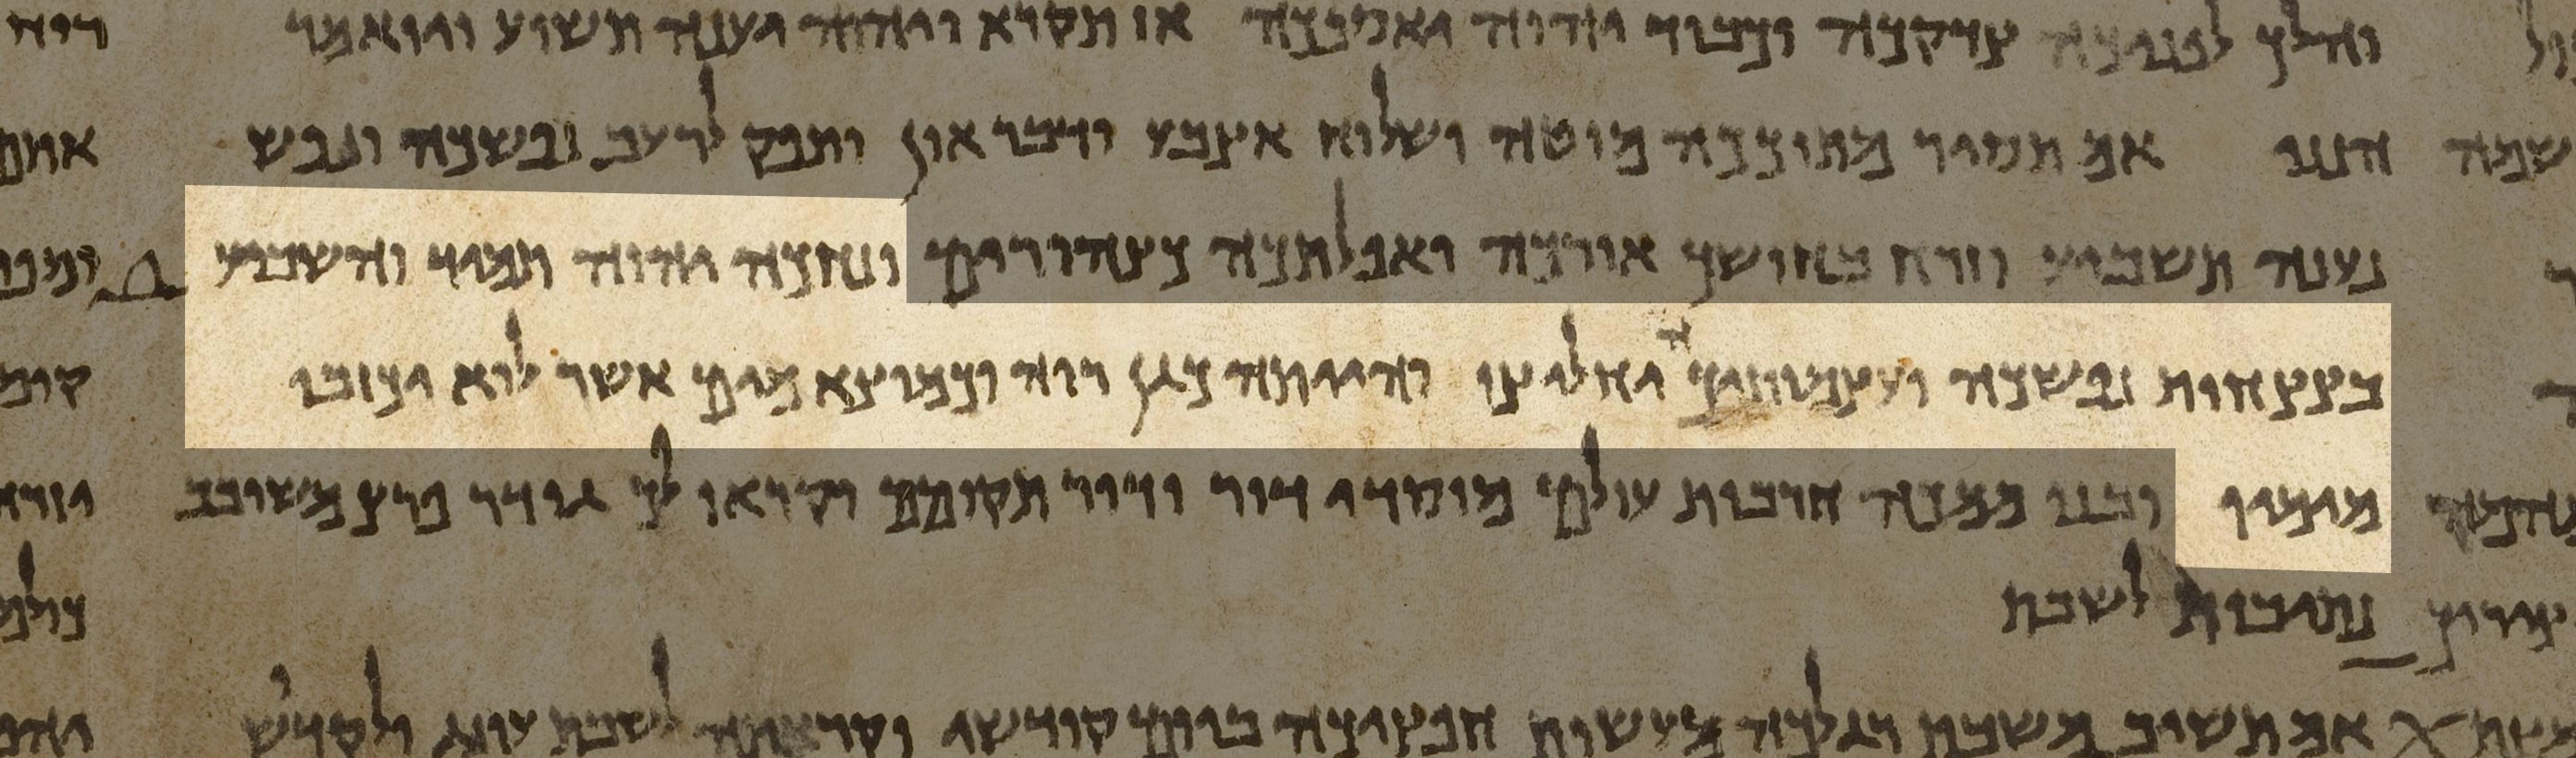 והלך לפניכה צדקכה וכבוד יהוה יאספכה אז תקרא ויהוה יענה תשוע ויואמר
הנני אם תסיר מתוככה מוטה ושלוח אצבע ודבר און ותפק לרעב נפשכה ונפש
נענה תשביע וזרח בחושך אורכה ואפלתכה כצהורים ונחכה יהוה תמיד והשביע
בצצחות נפשכה ועצמותיכה יחליצו והייתה כגן רוה וכמוצא מים אשר לוא יכזבו
מימיו ובנו ממכה חרבות עולם מוסדי דור ודור תקומם וקראו לך גודר פרץ משובב
נתיבות לשבת
אם תשיב משבת רגלכה מעשות חפציכה ביום קודשי וקראתה לשבת ענוג ולקדוש